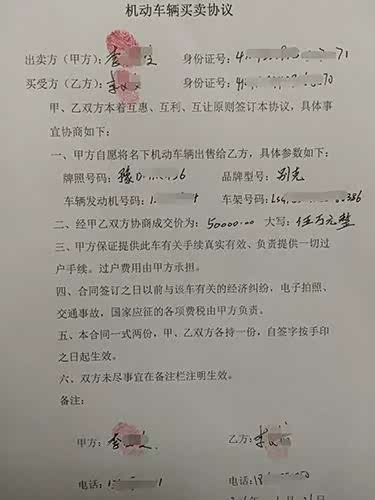 机动车辆买卖协议
出卖方（甲方）：李 身份证号：4 71
买受方（乙方）：李 身份证号：4 70
甲、乙双方本着互惠、互利、互让原则签订本协议，具体事
宜协商如下：
一、甲方自愿将名下机动车辆出售给乙方，具体参数如下：
牌照号码：豫D 36 品牌型号：别克
车辆发动机号码： 车架号码：LSG 386
二、经甲乙双方协商成交价为：50000.00 大写：伍万元整
三、甲方保证提供此车有关手续真实有效、负责提供一切过
户手续。过户费用由甲方承担。
四、合同签订之日以前与该车有关的经济纠纷，电子拍照、
交通事故，国家应征的各项费税由甲方负责。
五、本合同一式两份，甲、乙双方各持一份，自签字按手印
之日起生效。
六、双方未尽事宜在备注栏注明生效。
备注：
甲方：李 乙方：李
电话：13 电话：18 50